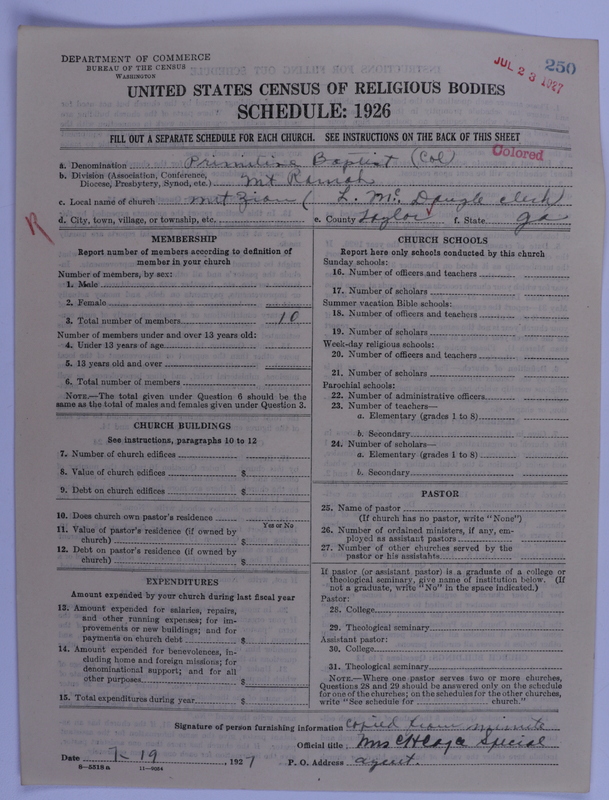 DEPARTMENT OF COMMERCE
BUREAU OF THE CENSUS
WASHINGTON
JUL 23 1927
250
UNITED STATES CENSUS OF RELIGIOUS BODIES
SCHEDULE: 1926
FILL OUT A SEPARATE SCHEDULE FOR EACH CHURCH. SEE INSTRUCTIONS ON THE BACK OF THIS SHEET
Colored
a. Denomination Primitive Baptist (Col)
b. Division (Association, Conference, Diocese, Presbytery, Synod, etc.) Mt Ramah
c. Local name of church Mt Zion ( L. Mc. Daugle clerk)
d. City, town, village, or township, etc. e. County Taylor f. State Ga
R
MEMBERSHIP
Report number of members according to definition of
member in your church
Number of members, by sex:
1. Male
2. Female
3. Total number of members 10
Number of members under and over 13 years old:
4. Under 13 years of age
5. 13 years old and over
6. Total number of members
NOTE.—The total given under Question 6 should be the
same as the total of males and females given under Question 3.
CHURCH BUILDINGS
See instructions, paragraphs 10 to 12
7. Number of church edifices
8. Value of church edifices $
9. Debt on church edifices $
10. Does church own pastor's residence
Yes or No
11. Value of pastor's residence (if owned by
church) $
12. Debt on pastor's residence (if owned by
church) $
EXPENDITURES
Amount expended by your church during last fiscal year
13. Amount expended for salaries, repairs,
and other running expenses; for im-
provements or new buildings; and for
payments on church debt $
14. Amount expended for benevolences, in-
cluding home and foreign missions; for
denominational support; and for all
other purposes $
15. Total expenditures during year $
CHURCH SCHOOLS
Report here only schools conducted by this church
Sunday schools:
16. Number of officers and teachers
17. Number of scholars
Summer vacation Bible schools:
18. Number of officers and teachers
19. Number of scholars
Week-day religious schools:
20. Number of officers and teachers
21. Number of scholars
Parochial schools:
22. Number of administrative officers
23. Number of teachers—
a. Elementary (grades 1 to 8)
b. Secondary
24. Number of scholars—
a. Elementary (grades 1 to 8)
b. Secondary
PASTOR
25. Name of pastor
(If church has no pastor, write "None")
26. Number of ordained ministers, if any, em-
ployed as assistant pastors
27. Number of other churches served by the
pastor or his assistants
If pastor (or assistant pastor) is a graduate of a college or
theological seminary, give name of institution below. (If
not a graduate, write "No" in the space indicated.)
Pastor:
28. College
29. Theological seminary
Assistant pastor:
30. College
31. Theological seminary
NOTE.—Where one pastor serves two or more churches,
Questions 28 and 29 should be answered only on the schedule
for one of the churches; on the schedules for the other churches,
write "See schedule for church."
Signature of person furnishing information Copied from minute
Official title Mrs Special
Date 7-19, 1927 P. O. Address agent.
8—5518a 11—9084